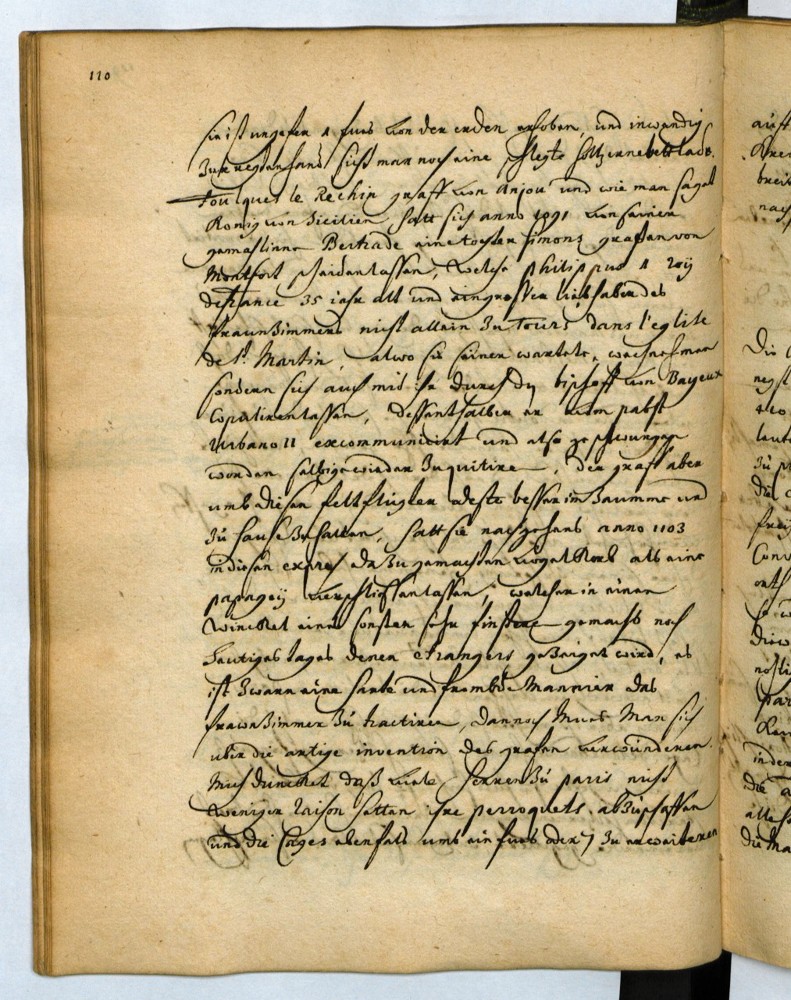 110
sie ist ungefehr 1 fus von der erden erhoben, und inwendig
zur rechten hand sicht man noch eine schlechte höltzerne bettlade.
foulques le Rechin graff von Anjou und wie man saget
König von Sicilien hatt sich anno 1091 von seiner
gemahlinne Bertrade eine tochter simons graffen von
Montfort scheiden lassen, welche philippus 1 roÿ
de france 35 iahr alt und ein grosser liebhaber des
frauenzimmers nicht allein zu Tours dans l'eglise
de St. Martin, alwo sie seiner wartete, wechnehmen
sondern sich auch mit ihr durch den bischoff von Bayeux
copuliren lassen, dessenthalben er vom pabst
Urbano II excommunicirt und also gezwungen
worden selbige wieder zu quitiren, der graff aber
umb diesen feltflüchter desto besser im Zaume und
zu hause zu halten, hatt sie nachgehends anno 1103
in diesen expres dazu gemachten vogel Korb als eine
papageÿ verschliessen lassen, welcher in einem
winckel einer sonsten sehr finstere gemachs noch
heutiges tages denen etrangers gezeiget wird, es
ist zwar eine harte und frembde Mannier das
frauenzimmer zu tractiren, dannoch mus Man sich
uber die artige invention des grafen verwunderen.
Mich duncket daß viele Herren zu paris nicht
weniger raison hetten ihre perroquets abzuschaffen
und die Cages ebenfals umb ein fus oder 7 zu erweiteren